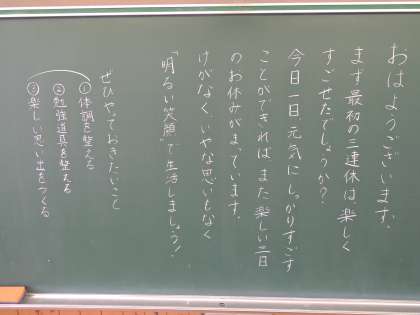 おはようございます。
まず最初の三連休は、楽しく
すごせたでしょうか？
今日一日、元気にしっかりすごす
ことができれば、また楽しい三日
のお休みがまっています。
けがなく、いやな思いもなく
「明るい笑顔」で生活しましょう！
ぜひやっておきたいこと
①体調を整える
②勉強道具を整える
③楽しい思い出をつくる